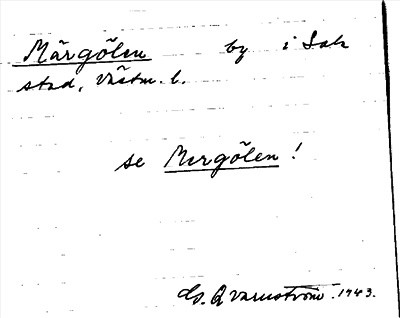 Märgölen by i Sala
stad, Västm. l.
se Mergölen!
G. Qvarnström. 1943.